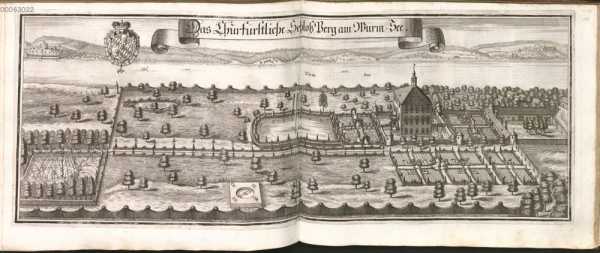 00063022
Das Churfürstliche Schloß Berg am Würm-See.